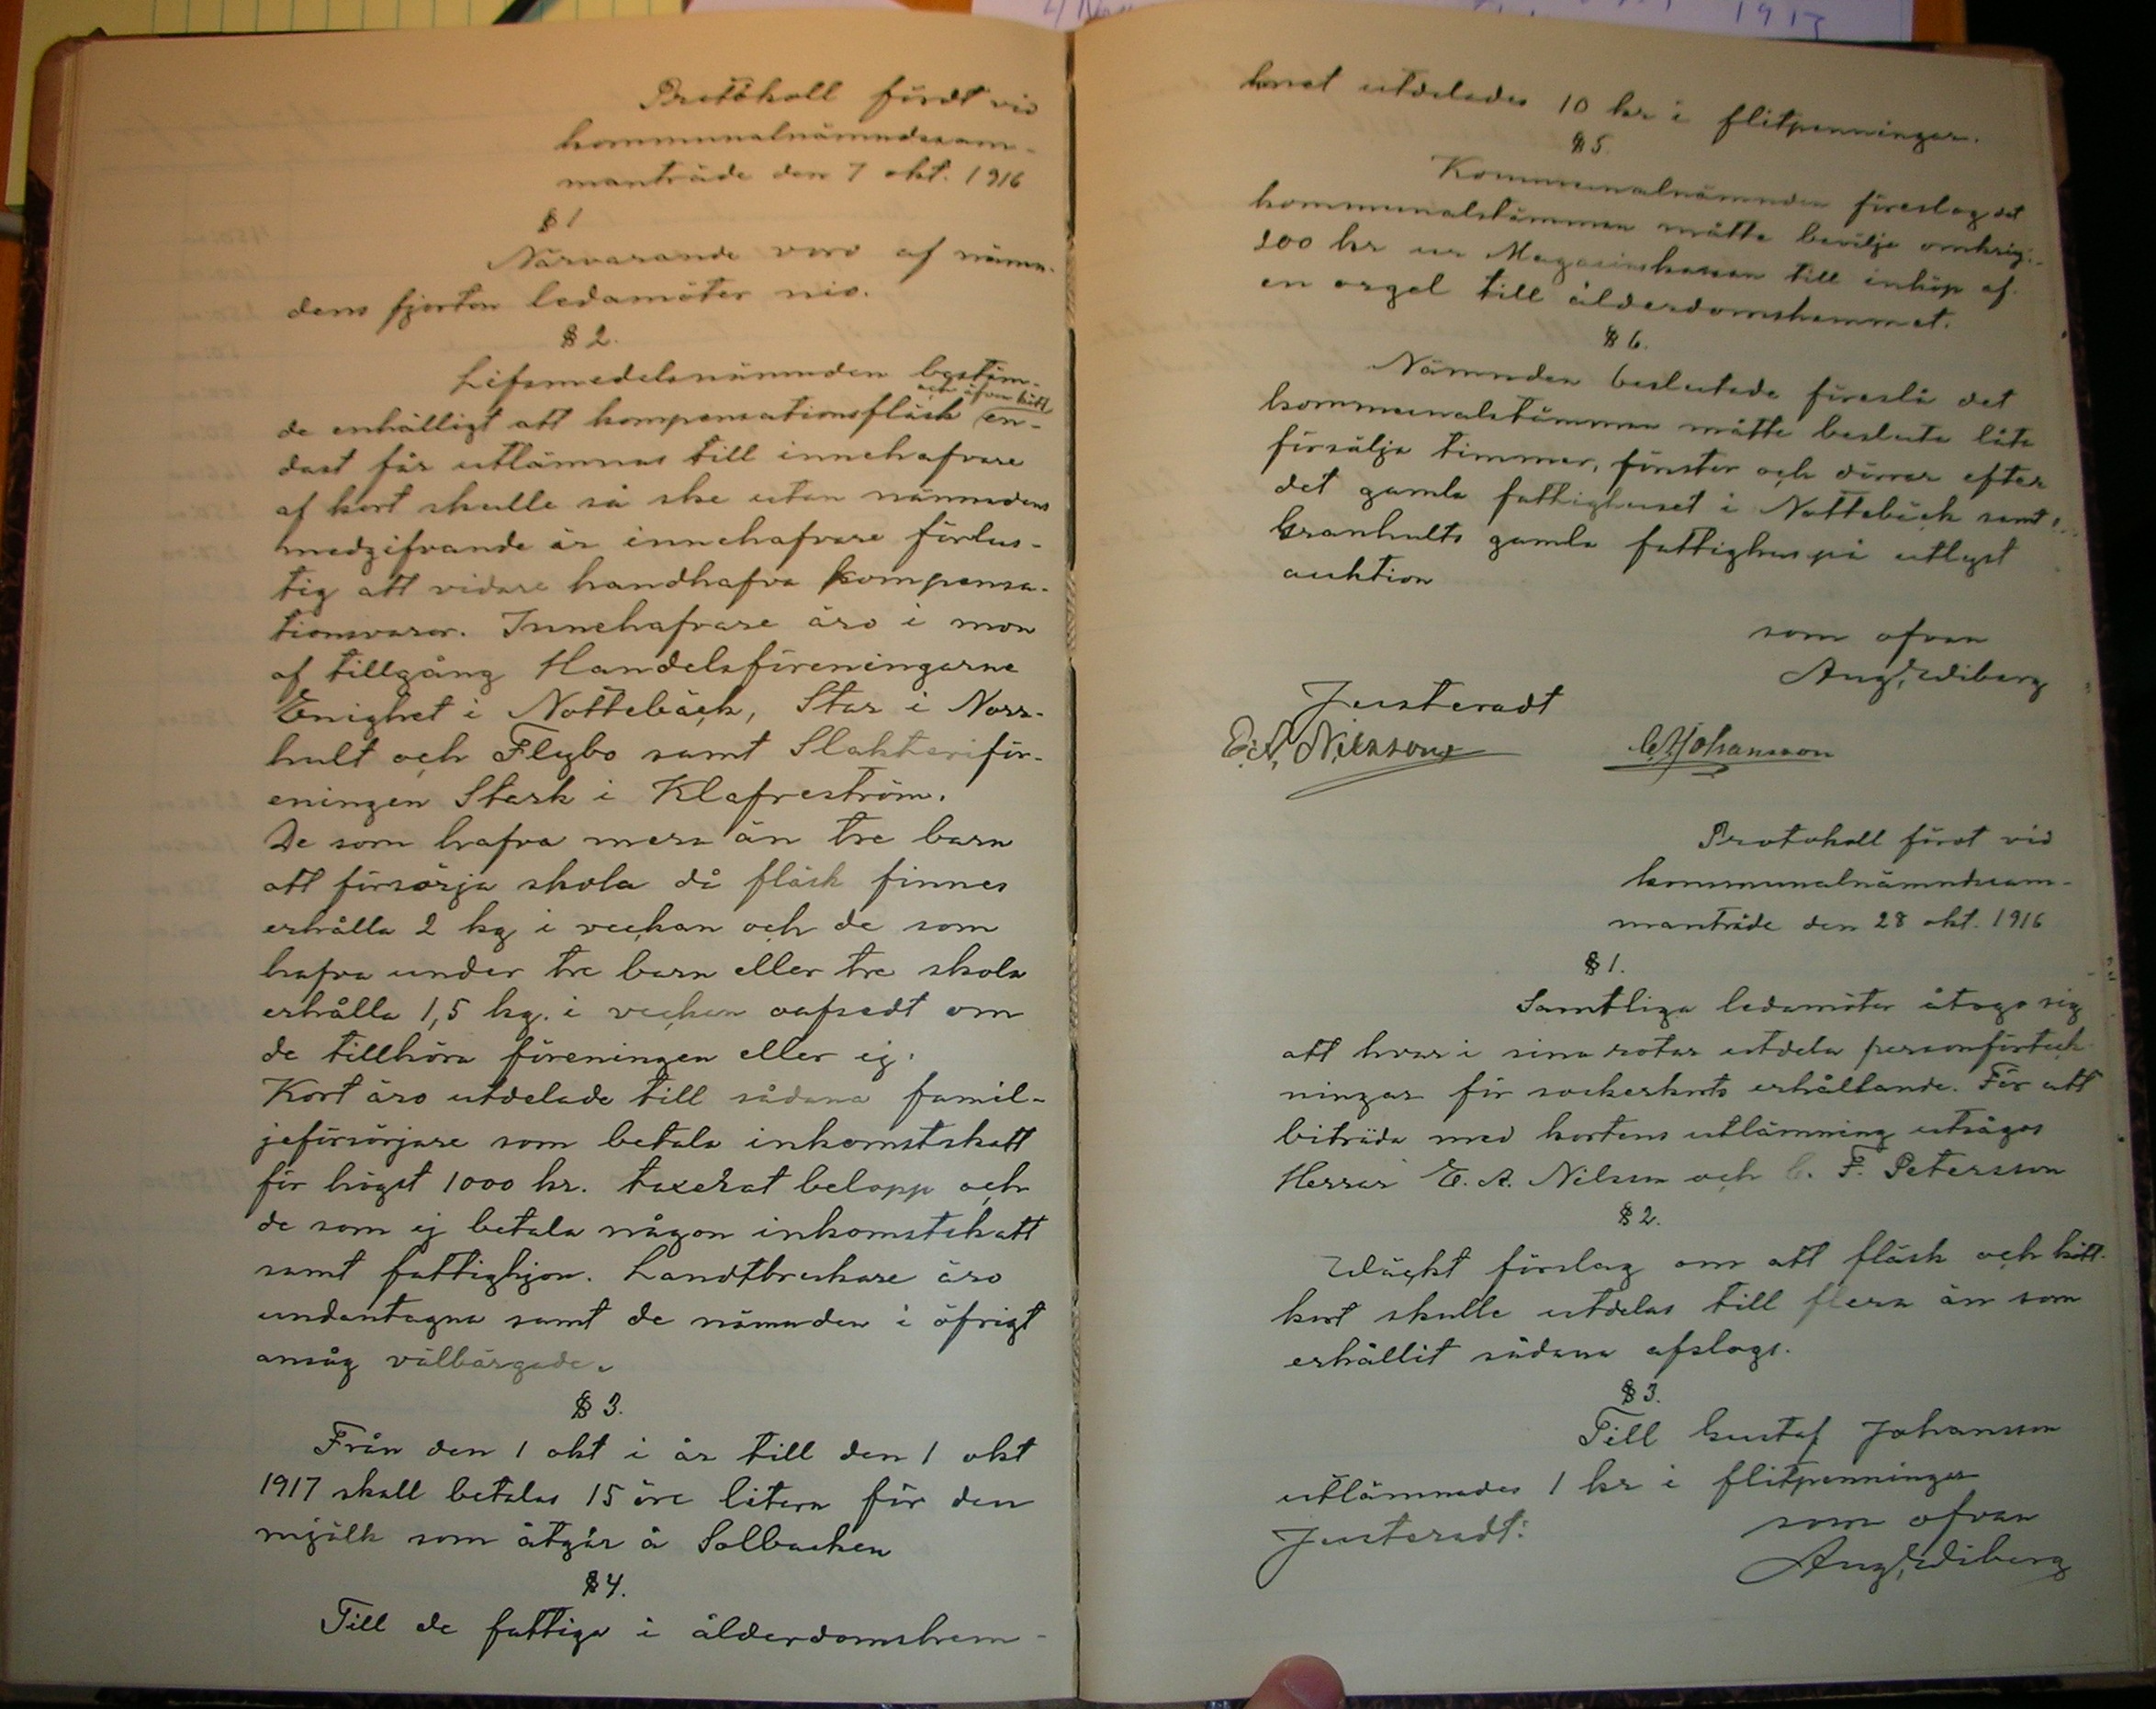 1917
Protokoll fördt vid
kommunalnämndssam-
manträde den 7 okt. 1916
§ 1
Närvarande voro af nämn-
dens fjorton ledamöter nio.
§ 2.
Lifsmedelsnämnden bestäm-
och äfven kött
de enhälligt att kompensationsfläsk en-
dast får utlämnas till innehafvare
af kort skulle så ske utan nämndens
medgifvande är innehafvare förlus-
tig att vidare handhafva kompensa-
tionsvaror. Innehafvare äro i mon
af tillgång Handelsföreningarne
Enighet i Nottebäck, Star i Norr-
hult och Flybo samt Slakteriför-
eningen Stark i Klafreström.
De som hafva mera än tre barn
att försörja skola då fläsk finnes
erhålla 2 kg i veckan och de som
hafva under tre barn eller tre skola
erhålla 1,5 kg. i veckan oafsedt om
de tillhöra föreningen eller ej.
Kort äro utdelade till sådana famil-
jeförsörjare som betala inkomstskatt
för högst 1000 kr. taxerat belopp och
de som ej betala någon inkomstskatt
samt fattighjon. Landtbrukare äro
undantagna samt de nämnden i öfrigt
ansåg välbärgade.
§ 3.
Från den 1 okt i år till den 1 okt
1917 skall betalas 15 öre litern för den
mjölk som åtgår å Solbacken
§ 4.
Till de fattiga i ålderdomshem-
met utdelades 10 kr i flitpenningar.
§ 5.
Kommunalnämnden föreslog det
kommunalstämman måtte bevilja omkring
200 kr ur Magasinskassan till inköp af
en orgel till ålderdomshemmet.
§ 6.
Nämnden beslutade föreslå det
kommunalstämman måtte besluta låta
försälja timmer, fönster och dörrar efter
det gamla fattighuset i Nottebäck samt
Granhults gamla fattighus på utlyst
auktion
som ofvan
Aug. Wiberg
Justeradt
E. A. Nilsson
C. Johansson
Protokoll fördt vid
kommunalnämndssam-
manträde den 28 okt. 1916
§ 1.
Samtliga ledamöter åtogo sig
att hvar i sina rotar utdela personförteck-
ningar för sockerkorts erhållande. För att
biträda med kortens utlämning utsågos
Herrar E. A. Nilsson och C. F. Petersson
§ 2.
Wäckt förslag om att fläsk och kött-
kort skulle utdelas till flera än som
erhållit sådana afslogs.
§ 3.
Till Gustaf Johansson
utlämnades 1 kr i flitpenningar
som ofvan
Justeradt:
Aug. Wiberg